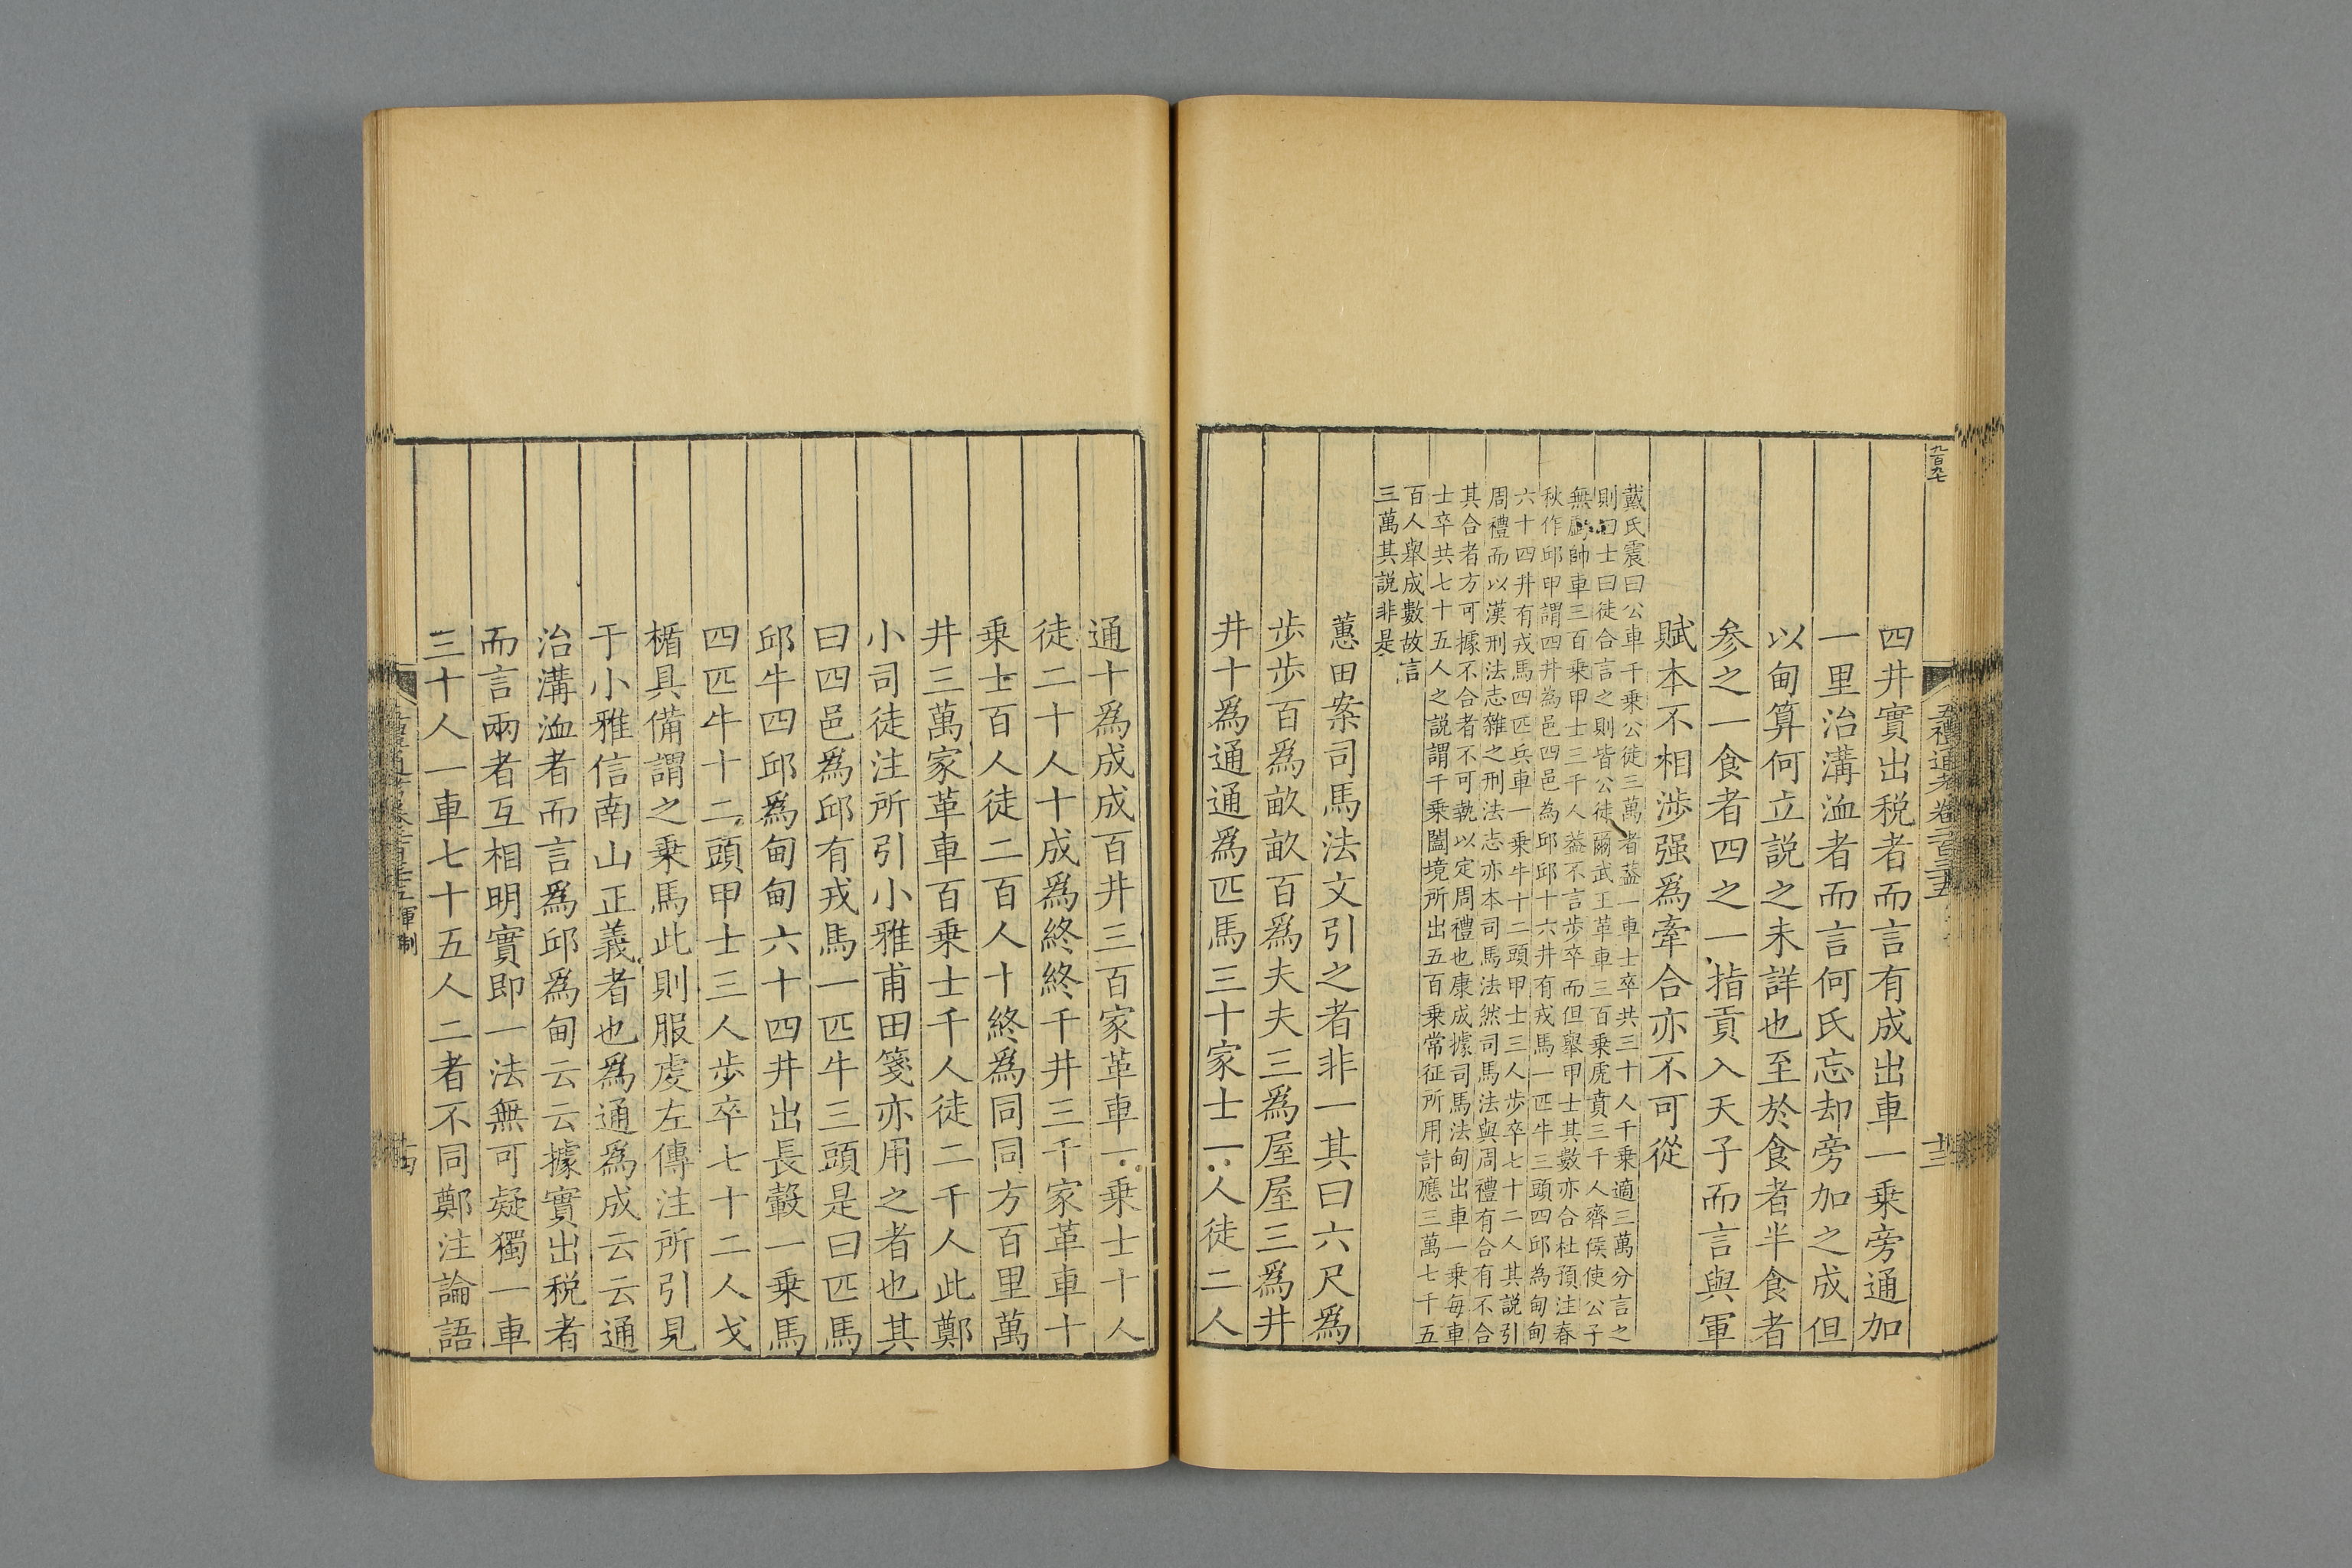 九百九七
五禮通考卷二百三十五
十三
四井實出税者而言有成出車一乗旁通加
一里治溝洫者而言何氏忘却旁加之成但
以甸算何立説之未詳也至於食者半食者
参之一食者四之一指貢入天子而言與軍
賦本不相渉强為牽合亦不可從
戴氏震曰公車千乗公徒三萬者葢一車士卒共三十人千乗適三萬分言之
則曰士曰徒合言之則皆公徒爾武王革車三百乗虎賁三千人齊侯使公子
無虧帥車三百乗甲士三千人葢不言歩卒而但舉甲士其數亦合杜預注春
秋作邱甲謂四井為邑四邑為邱邱十六井有戎馬一匹牛三頭四邱為甸甸
六十四井有戎馬四匹兵車一乗牛十二頭甲士三人歩卒七十二人其説引
周禮而以漢刑法志雜之刑法志亦本司馬法然司馬法與周禮有合有不合
其合者方可據不合者不可執以定周禮也康成據司馬法甸出車一乗每車
士卒共七十五人之説謂千乗闔境所出五百乗常征所用計應三萬七千五
百人舉成數故言
三萬其説非是
蕙田案司馬法文引之者非一其曰六尺爲
歩歩百爲畝畝百爲夫夫三爲屋屋三爲井
井十爲通通爲匹馬三十家士一人徒二人
通十爲成成百井三百家革車一乗士十人
徒二十人十成爲終終千井三千家革車十
乗士百人徒二百人十終爲同同方百里萬
井三萬家革車百乗士千人徒二千人此鄭
小司徒注所引小雅甫田箋亦用之者也其
曰四邑爲邱有戎馬一匹牛三頭是曰匹馬
邱牛四邱爲甸甸六十四井出長轂一乗馬
四匹牛十二頭甲士三人歩卒七十二人戈
楯具備謂之乗馬此則服虔左傳注所引見
于小雅信南山正義者也爲通爲成云云通
治溝洫者而言爲邱爲甸云云據實出税者
而言兩者互相明實即一法無可疑獨一車
三十人一車七十五人二者不同鄭注論語
軍制
十四